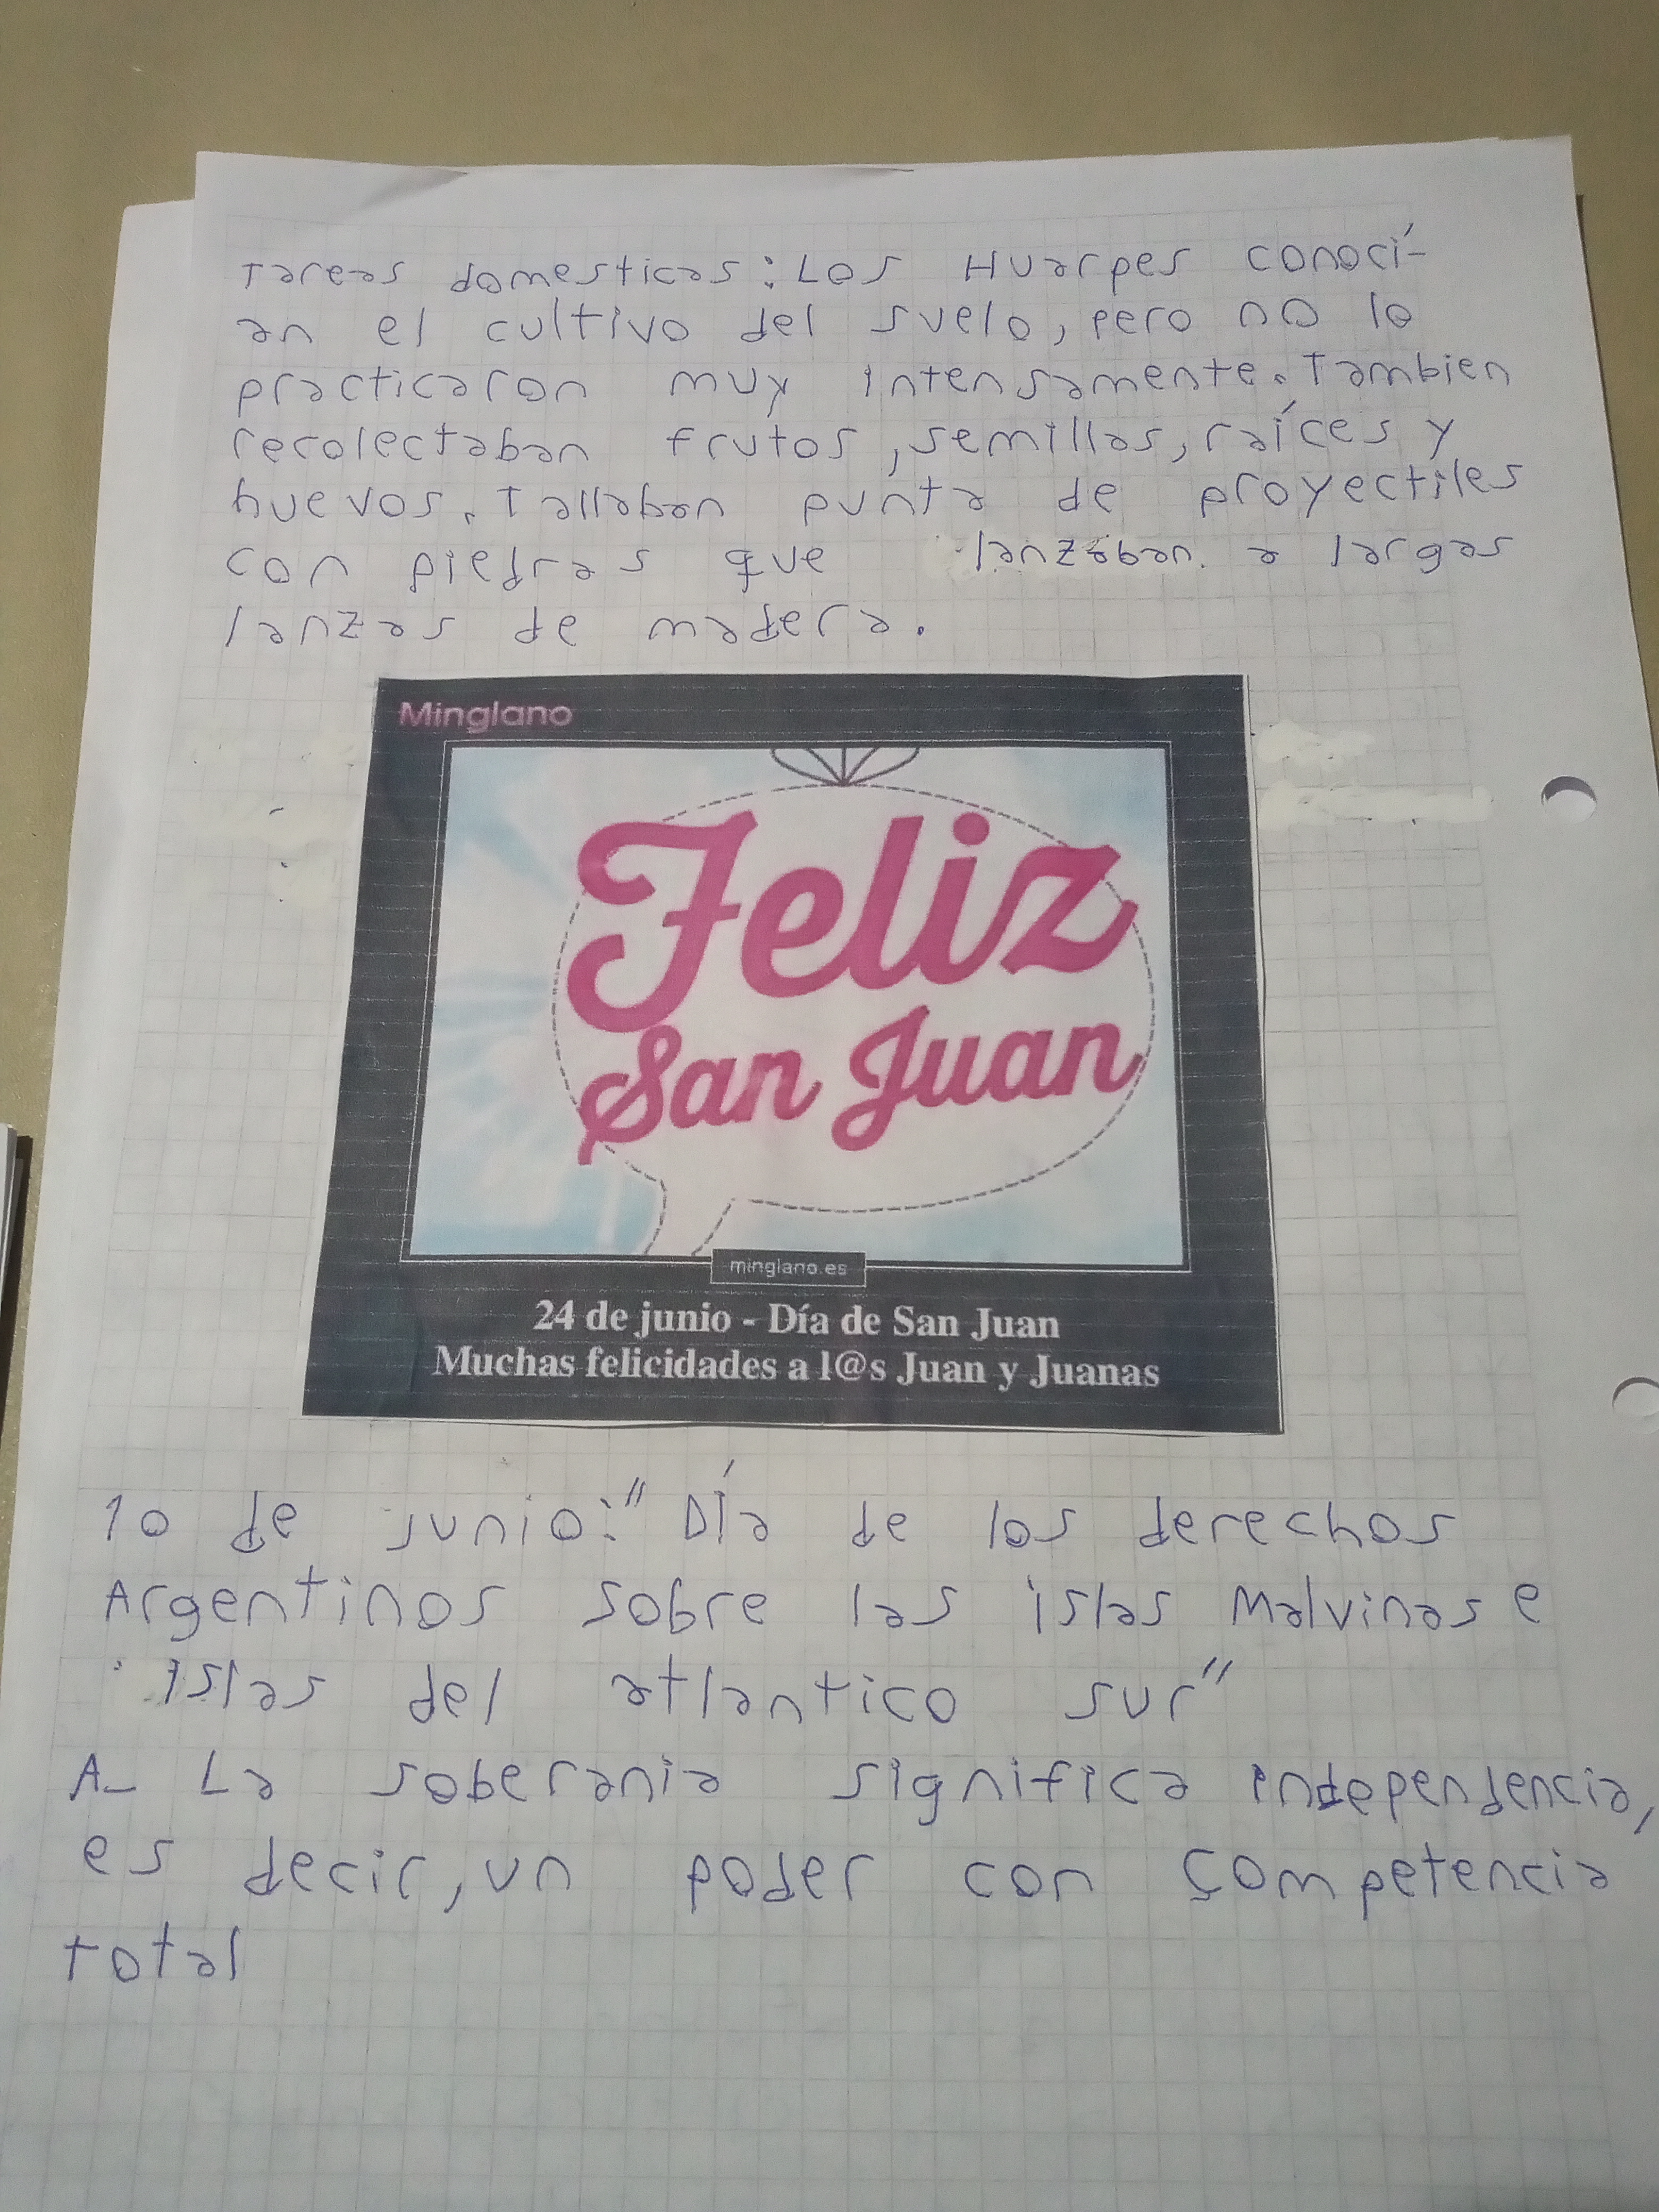 Tareas domesticas: Los Huarpes conocí-
an el cultivo del suelo, pero no lo
practicaron muy intensamente. Tambien
recolectaban frutos, semillas, raíces y
huevos. Tallaban punta de proyectiles
con piedras que lanzaban a largas
lanzas de madera.
Minglano
Feliz
San Juan
minglano.es
24 de junio - Día de San Juan
Muchas felicidades a l@s Juan y Juanas
10 de junio: "Día de los derechos
Argentinos sobre las islas Malvinas e
islas del atlantico sur"
A- La soberania significa independencia,
es decir, un poder con competencia
total